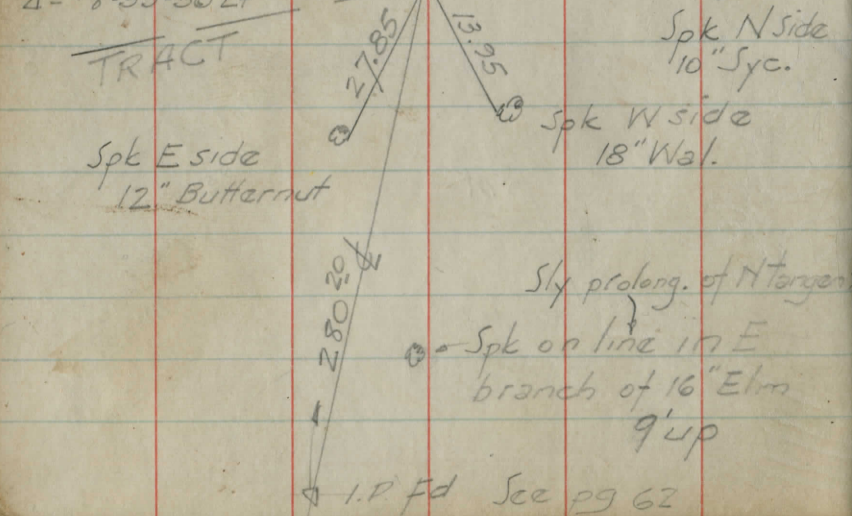 TRACT
27.85
13.95
Spk N side
10" Syc.
Spk W side
18" Wal.
Spk E side
12" Butternut
280.20
℄
Sly prolong. of N Tangen
Spk on line in E
branch of 16" Elm
9' up
I.P Fd See pg 62